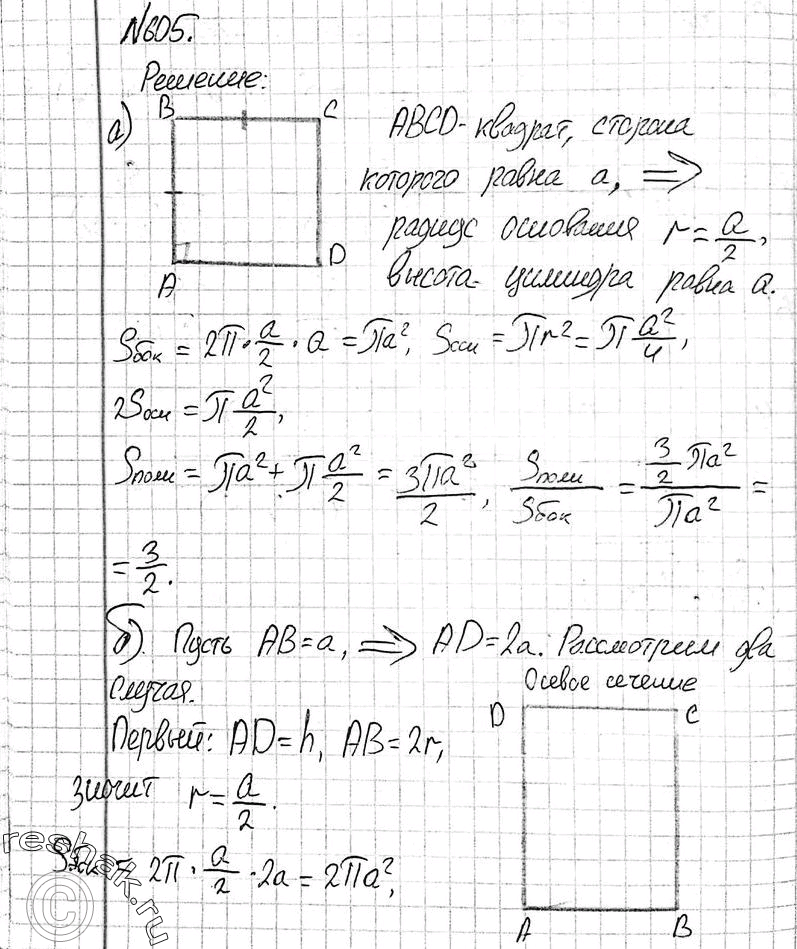 №605.
Решение:
а)
B C
A D
ABCD-квадрат, сторона
которого равна a, ⇒
радиус основания r = a/2,
высота цилиндра равна a.
Sбок = 2π · a/2 · a = πa², Sосн = πr² = π a²/4,
2Sосн = π a²/2,
Sполн = πa² + π a²/2 = 3πa²/2, Sполн/Sбок = (3/2 πa²)/(πa²) =
= 3/2.
б). Пусть AB = a, ⇒ AD = 2a. Рассмотрим два
случая.
Осевое сечение
D C
A B
Первый: AD = h, AB = 2r,
значит r = a/2.
Sбок = 2π · a/2 · 2a = 2πa²,
reshak.ru
©